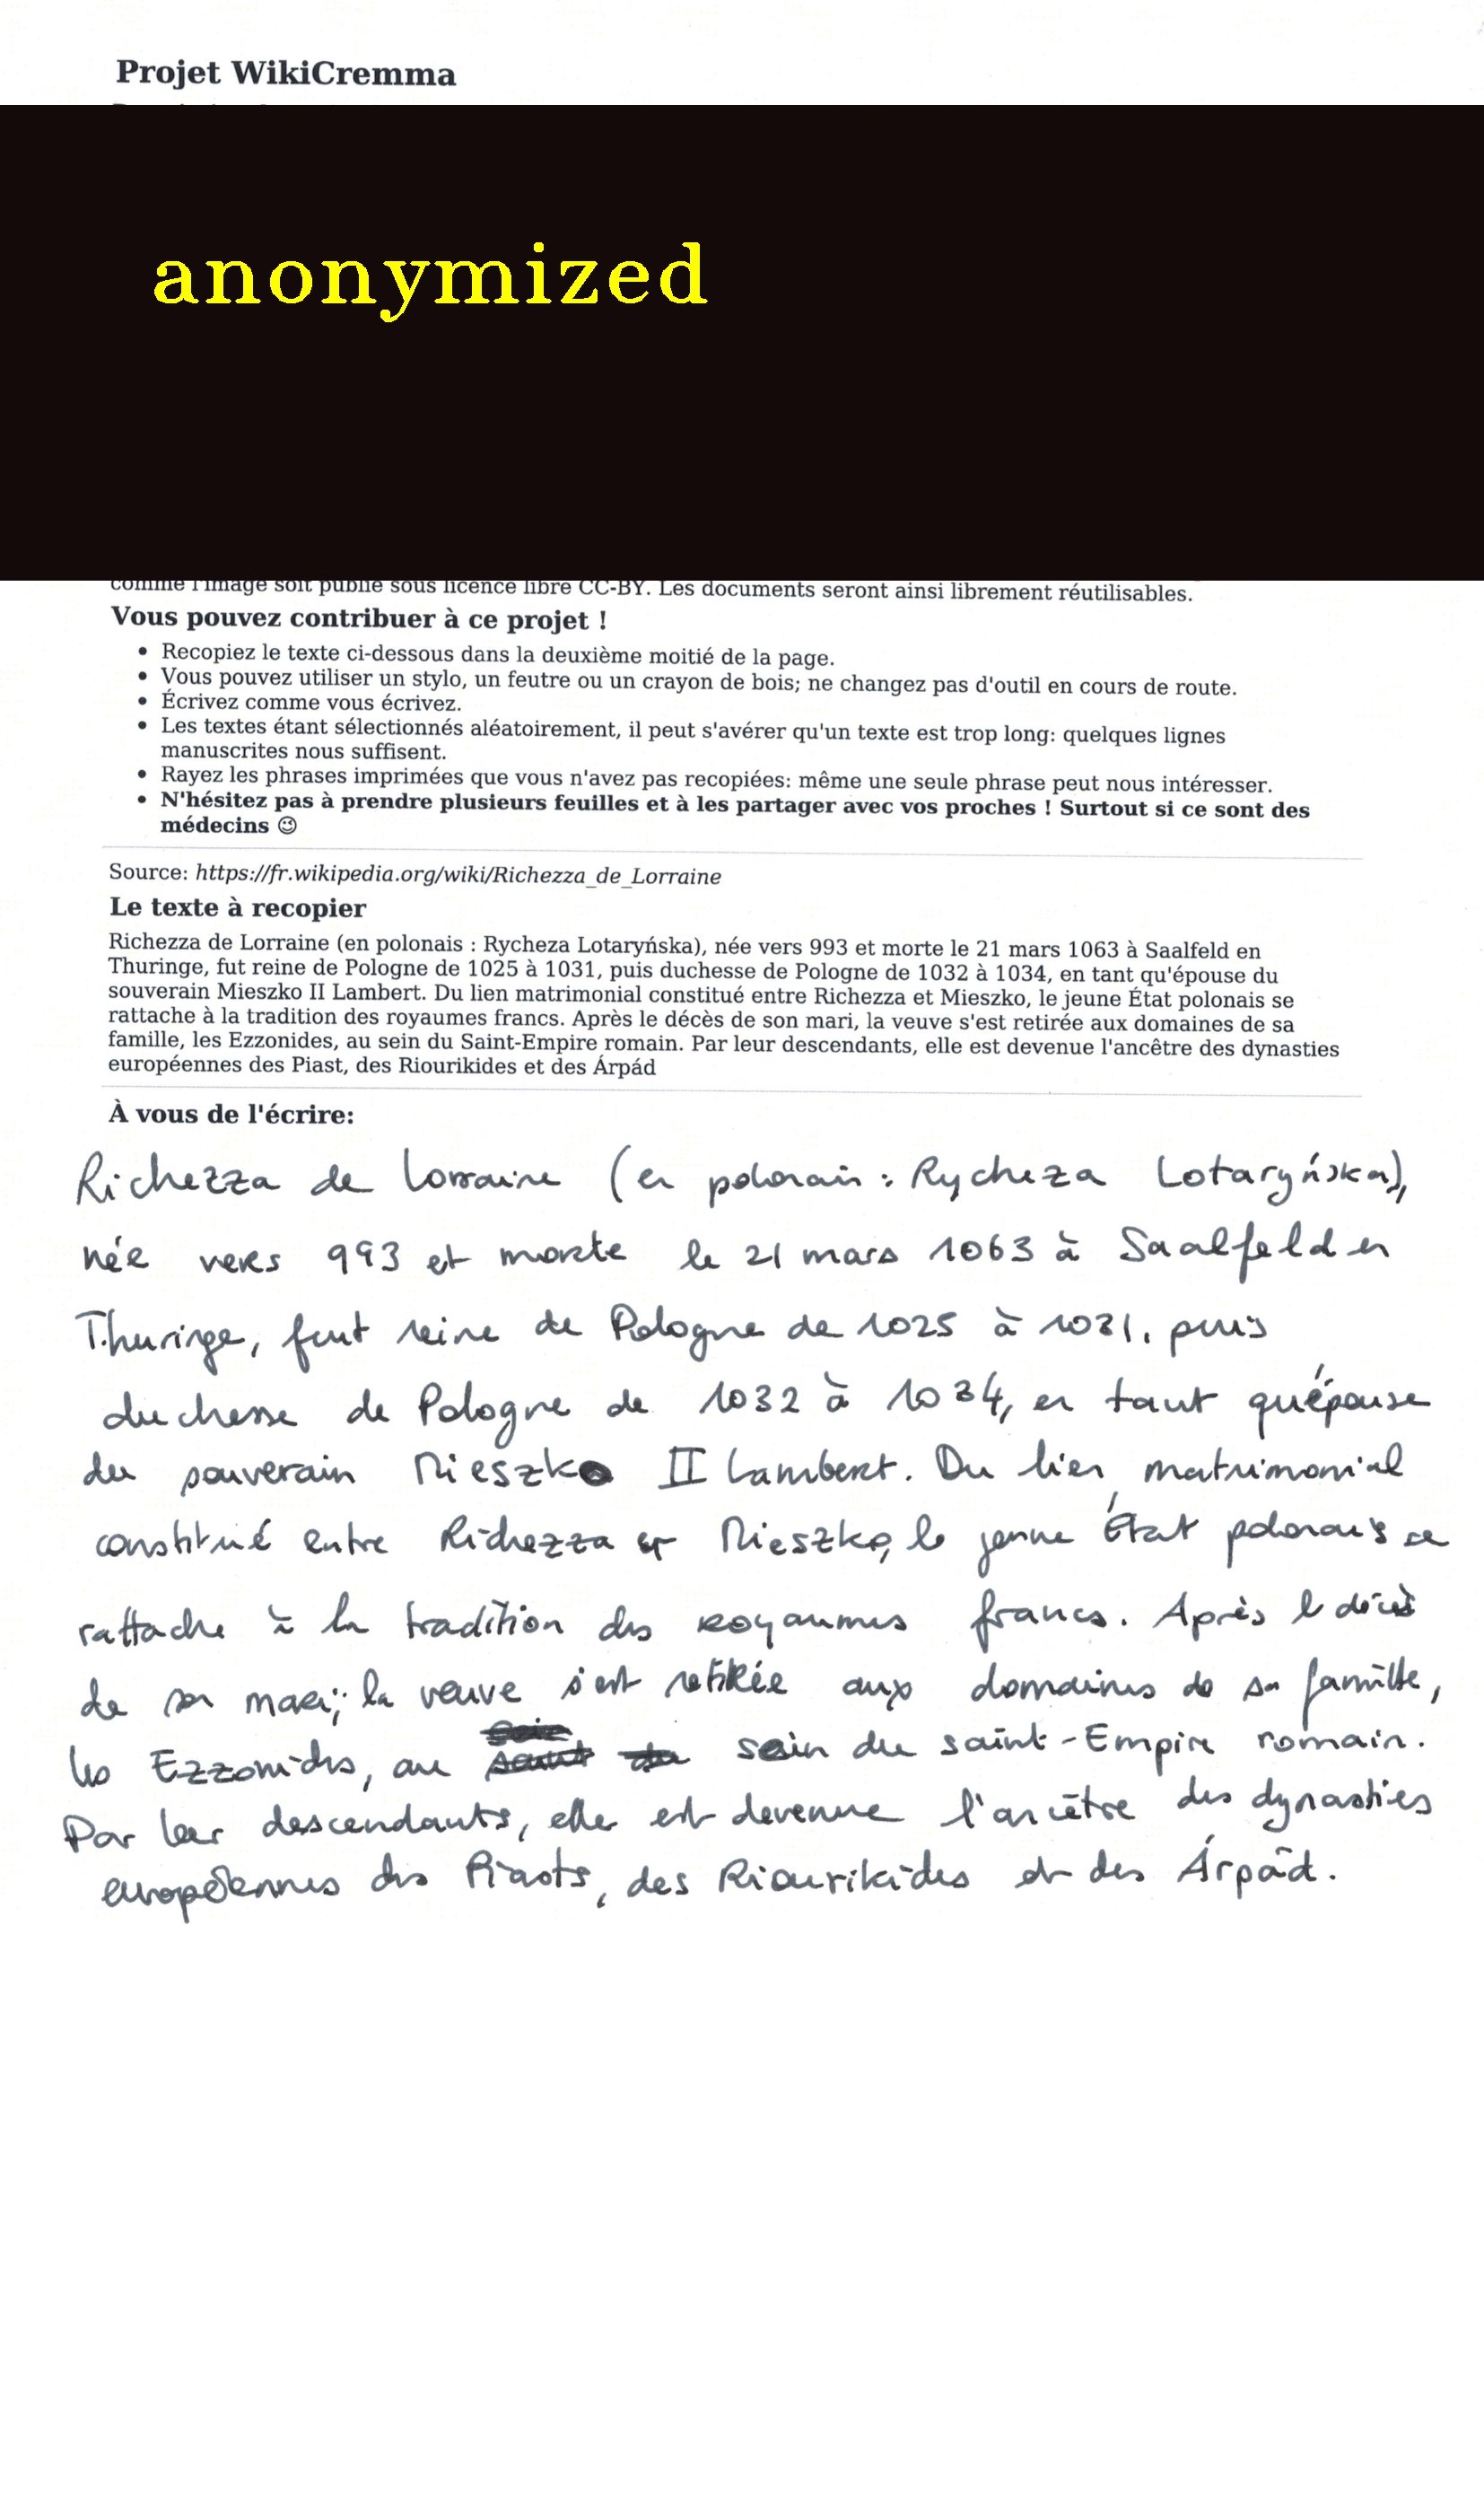 Projet WikiCremma
anonymized
comme l'image soit publié sous licence libre CC-BY. Les documents seront ainsi librement réutilisables.
Vous pouvez contribuer à ce projet !
• Recopiez le texte ci-dessous dans la deuxième moitié de la page.
• Vous pouvez utiliser un stylo, un feutre ou un crayon de bois; ne changez pas d'outil en cours de route.
• Écrivez comme vous écrivez.
• Les textes étant sélectionnés aléatoirement, il peut s'avérer qu'un texte est trop long: quelques lignes
manuscrites nous suffisent.
• Rayez les phrases imprimées que vous n'avez pas recopiées: même une seule phrase peut nous intéresser.
• N'hésitez pas à prendre plusieurs feuilles et à les partager avec vos proches ! Surtout si ce sont des
médecins 😉
Source: https://fr.wikipedia.org/wiki/Richezza_de_Lorraine
Le texte à recopier
Richezza de Lorraine (en polonais : Rycheza Lotaryńska), née vers 993 et morte le 21 mars 1063 à Saalfeld en
Thuringe, fut reine de Pologne de 1025 à 1031, puis duchesse de Pologne de 1032 à 1034, en tant qu'épouse du
souverain Mieszko II Lambert. Du lien matrimonial constitué entre Richezza et Mieszko, le jeune État polonais se
rattache à la tradition des royaumes francs. Après le décès de son mari, la veuve s'est retirée aux domaines de sa
famille, les Ezzonides, au sein du Saint-Empire romain. Par leur descendants, elle est devenue l'ancêtre des dynasties
européennes des Piast, des Riourikides et des Árpád
À vous de l'écrire:
Richezza de Lorraine (en polonais : Rycheza Lotaryńska),
née vers 993 et morte le 21 mars 1063 à Saalfeld en
Thuringe, fut reine de Pologne de 1025 à 1031, puis
duchesse de Pologne de 1032 à 1034, en tant qu'épouse
du souverain Mieszko II Lambert. Du lien matrimonial
constitué entre Richezza et Mieszko, le jeune État polonais se
rattache à la tradition des royaumes francs. Après le décès
de son mari, la veuve s'est retirée aux domaines de sa famille,
les Ezzonides, au sein du saint-Empire romain.
Par leur descendants, elle est devenue l'ancêtre des dynasties
européennes des Piasts, des Riourikides et des Árpád.